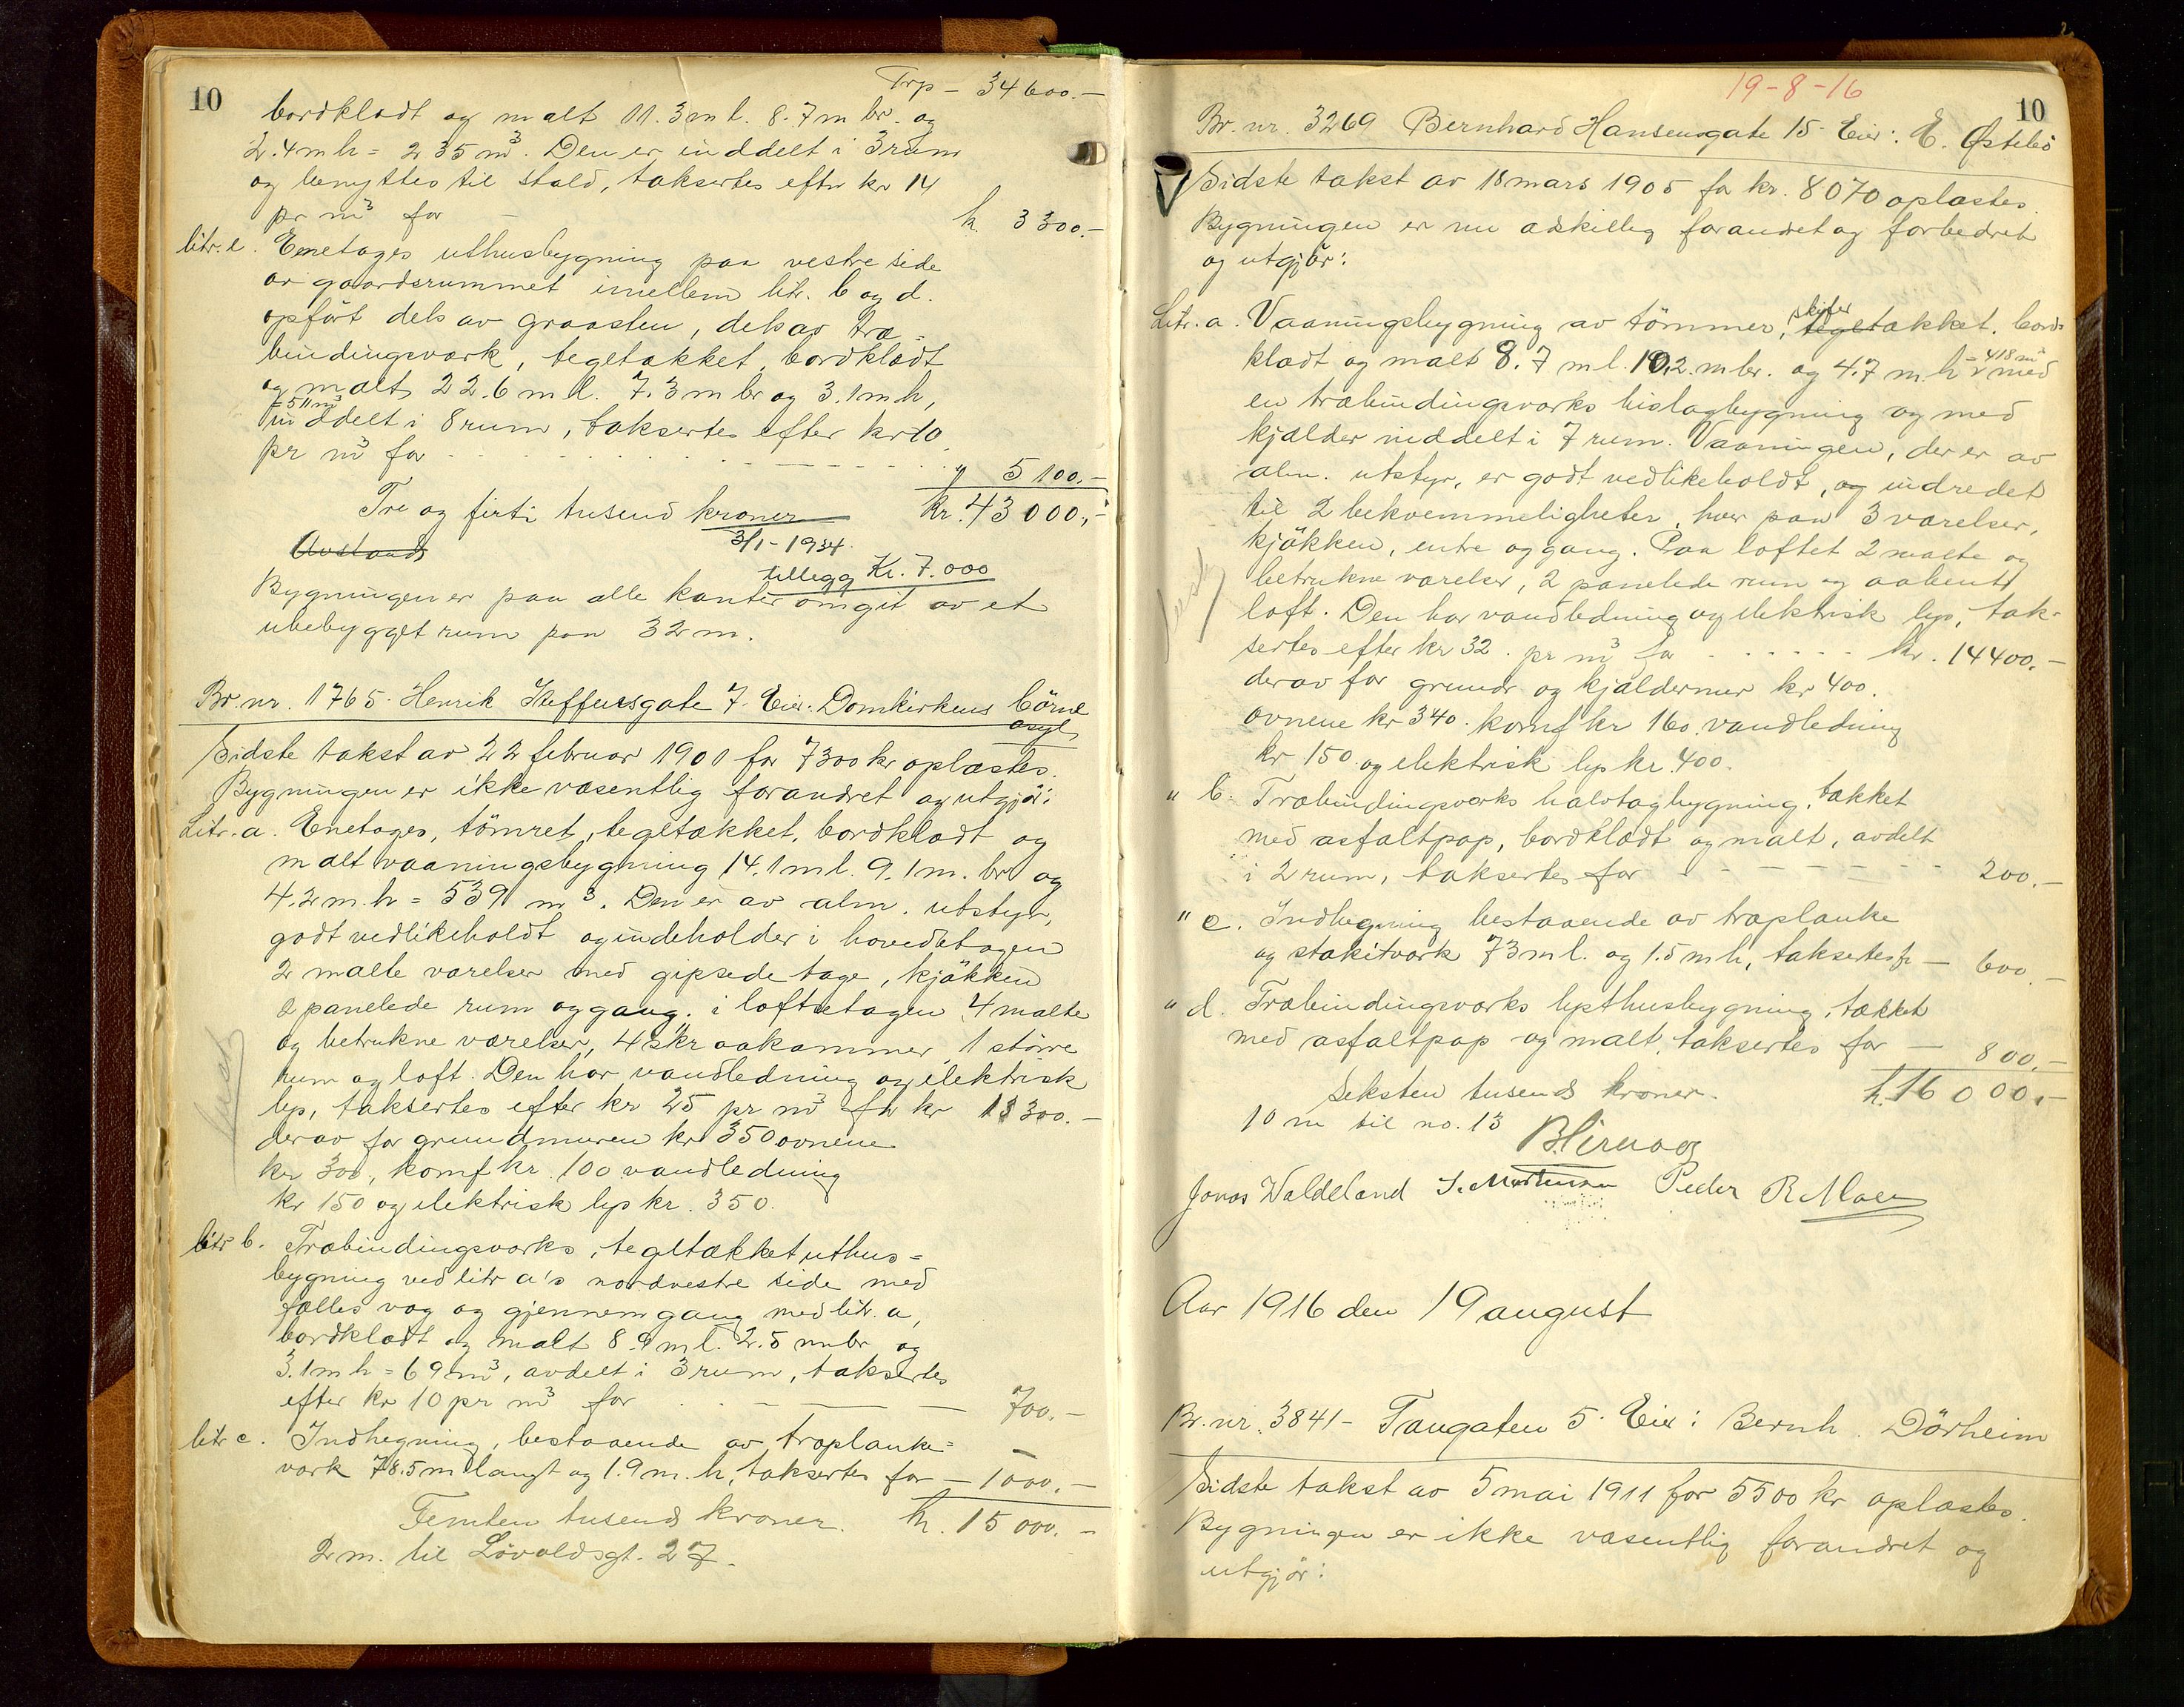 10
Trp – 34600.–
bordklædt og malt 11.3 m l. 8.7 m br. og
2.4 m h = 235 m³. Den er inddelt i 3 rum
og benyttes til stald, taksertes efter kr 14
pr m³ for – kr. 3300.–
litr. e. Enetages uthusbygning paa vestre side
av gaardsrummet imellem litr. b og d.
opført dels av graasten, dels av træ-
bindingsværk, tegltækket, bordklædt
og malt 22.6 m l. 7.3 m br og 3.1 m h,
= 511 m³
inddelt i 8 rum, taksertes efter kr 10
pr m³ for - - - - - „ 5100.–
Tre og firti tusend kroner kr. 43000,-
Avstand
3/1-1934.
tillegg Kr. 7.000
Bygningen er paa alle kanter omgit av et
ubebygget rum paa 32 m.
Br. nr. 1765. Henrik Steffensgate 7. Eier: Domkirkens börne
asyl
Sidste takst av 22 februar 1901 for 7300 kr oplæstes.
Bygningen er ikke væsentlig forandret og utgjör:
Litr. a. Enetages, tömret, tegltækket, bordklædt og
malt vaaningsbygning 14.1 m l. 9.1 m. br og
4.2 m. h = 539 m³. Den er av alm. utstyr,
godt vedlikeholdt og indeholder i hovedetagen
2 malte værelser med gipsede tage, kjökken
2 panelede rum og gang. i loftsetagen 4 malte
og betrukne værelser, 4 skraakammer, 1 större
rum og loft. Den har vandledning og elektrisk
lys, taksertes efter kr 25 pr m³ for kr 13300.–
derav for grundmuren kr 350 ovnene
kr 300, komf kr. 100 vandledning
kr 150 og elektrisk lys kr. 350.
litr b. Træbindingsværks, tegltækket uthus-
bygning ved litr a's nordvestre side med
fælles væg og gjennemgang med litr. a,
bordklædt og malt 8.9 m l. 2.5 m br og
3.1 m h = 69 m³, avdelt i 3 rum, taksertes
efter kr 10 pr m³ for – – – 700.–
litr c. Indhegning, bestaaende av træplanke-
værk 78.5 m langt og 1.9 m. h, taksertes for – 1000.–
Femten tusend kroner. kr. 15000.–
2 m. til Lövoldsgt. 27.
19-8-16
10
Br. nr. 3269 Bernhard Hansensgate 15. Eier: E. Östebö
Sidste takst av 18 mars 1905 for kr. 8070 oplæstes.
Bygningen er nu adskillig forandret og forbedret
og utgjör:
skifer
Litr. a. Vaaningsbygning av tömmer, tegltækket, bord-
klædt og malt 8.7 m l. 10.2. m br. og 4.7 m. h = 418 m³ med
en træbindingsværks bislagbygning og med
kjælder inddelt i 7 rum. Vaaningen, der er av
alm. utstyr, er godt vedlikeholdt, og indredet
til 2 bekvemmeligheter, hver paa 3 værelser,
kjökken, entre og gang. Paa loftet 2 malte og
betrukne værelser, 2 panelede rum og aabent
loft. Den har vandledning og elektrisk lys, tak-
sertes efter kr 32. pr m³ for - - - - - kr. 14400.–
derav for grundr og kjældermur kr 400.
ovnene kr 340. komf kr 160. vandledning
kr 150 og elektrisk lys kr. 400.
" b. Træbindingsværks halvtagbygning, tækket
med asfaltpap, bordklædt og malt, avdelt
i 2 rum, taksertes for - - - - - 200.–
" c. Indhegning bestaaende av træplanke
og stakitværk 73 m l. og 1.5 m h, taksertes fr – 600.–
" d. Træbindingsværks lysthusbygning, tækket
med asfaltpap og malt, taksertes for – 800.–
Seksten tusend kroner. kr. 16000.–
10 m til no. 13
Jonas Waldeland S. Mortensen Peder R. Moen
Aar 1916 den 19 august
Br. nr. 3841 – Taugaten 5. Eier: Bernh. Dörheim
Sidste takst av 5 mai 1911 for 5500 kr oplæstes.
Bygningen er ikke væsentlig forandret og
utgjör: